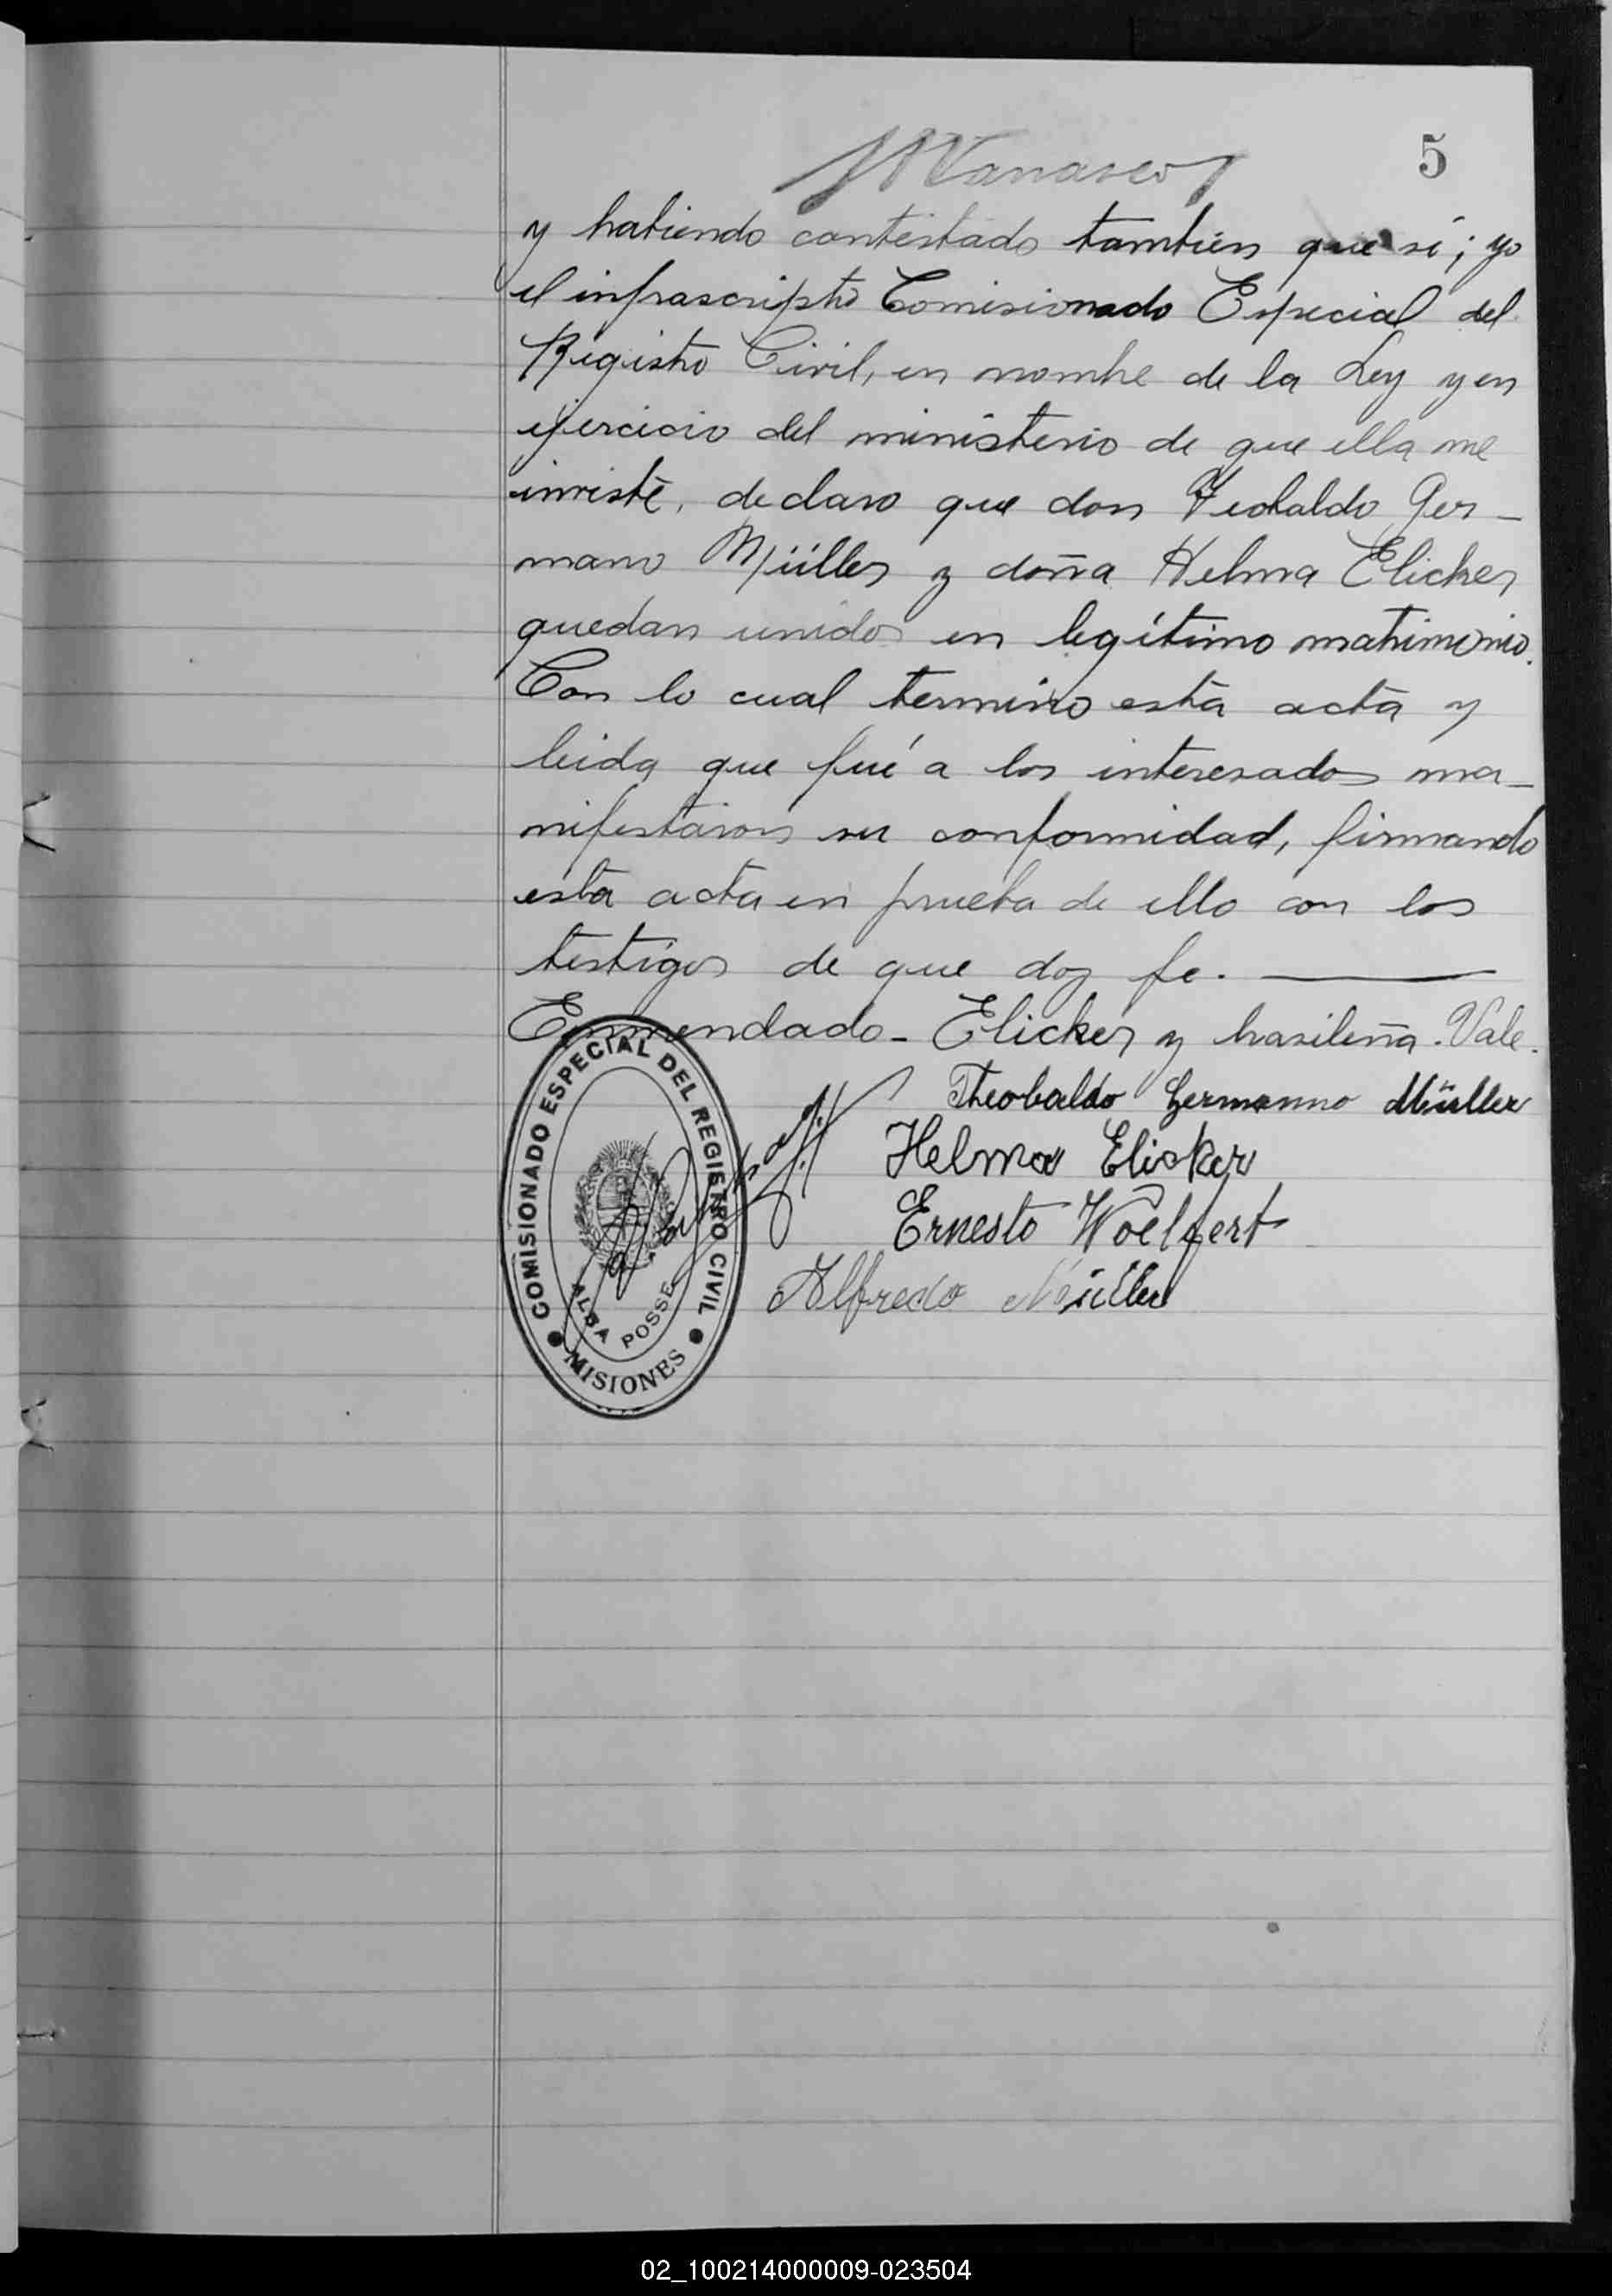 5
y habiendo contestado tambien que si; yo
el infrascripto Comisionado Especial del
Registro Civil, en nombre de la Ley y en
ejercicio del ministerio de que ella me
inviste, declaro que don Teobaldo Ger-
mano Müller y doña Helma Elicker
quedan unidos en legítimo matrimonio.
Con lo cual termino esta acta y
leida que fué a los interesados ma-
nifestaron su conformidad, firmando
esta acta en prueba de ello con los
testigos de que doy fe.
Enmendado - Elicker y brasileña. Vale.
Theobaldo Germanno Müller
Helma Elicker
Ernesto Woelfert
Alfredo Müller
COMISIONADO ESPECIAL DEL REGISTRO CIVIL
ALBA POSSE
MISIONES
02_100214000009-023504